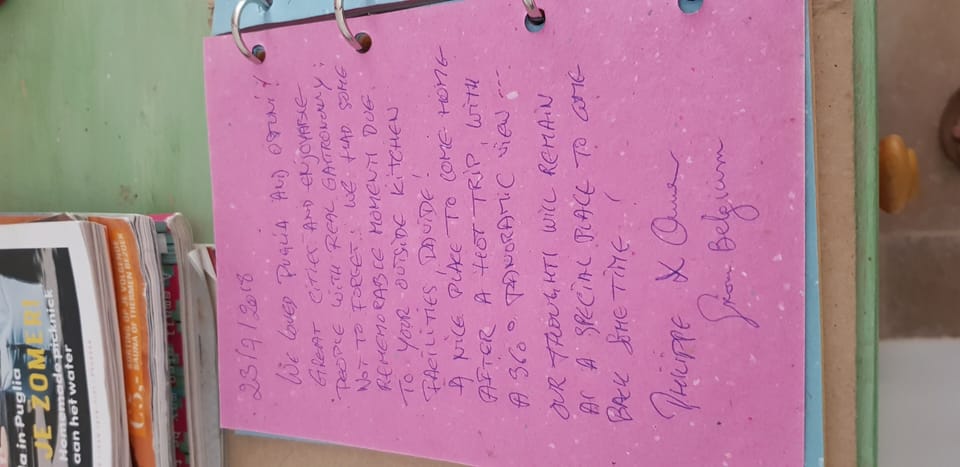 23/9/2018
WE LOVED PUGLIA AND OSTUNI!
GREAT CITIES AND ENJOYABLE
PEOPLE WITH REAL GASTRONOMY;
NOT TO FORGET: WE HAD SOME
REMEMORABLE MOMENTS DUE
TO YOUR OUTSIDE KITCHEN
FACILITIES DAVIDE!
A NICE PLACE TO COME HOME
AFTER A "HOT TRIP" WITH
A 360° PANORAMIC VIEW ...
OUR THOUGHTS WILL REMAIN
AS A SPECIAL PLACE TO COME
BACK SOMETIME!
PHILIPPE &
From Belgium
a in Puglia
JE ZOMER!
Homemade picknick
aan het water
KORTING OP JE VOLGENDE
SAUNA OF THERMEN BEZOEK